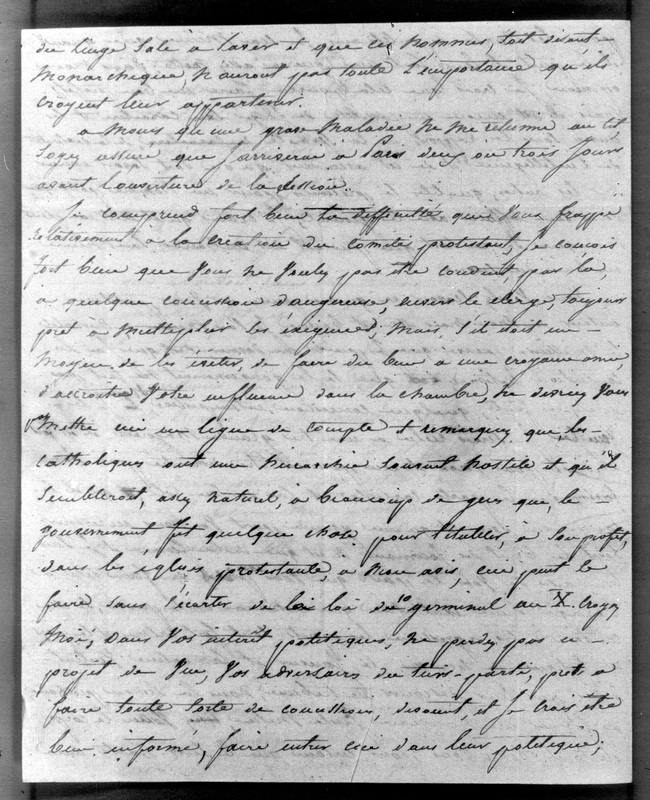 du linge sale à laver et que ces hommes, soit disant
monarchique, n'auront pas toute l'importance qu'ils
croyent leur appartenir.
a moins qu'une grave maladie ne me retienne au lit
soyez assuré que j'arriverai à Paris deux ou trois jours
avant l'ouverture de la session.
Je comprend fort bien la difficulté qui vous frappe
relativement à la création du comité protestant, je conçois
fort bien que vous ne vouley pas être conduit, par la,
a quelque concession dangereuse, envers le clergé, toujours
prêt à multiplier les exigences; mais, s'il doit un
moyen de les éviter, de faire du bien a une croyance amie,
d'accroitre votre influence dans la chambre, ne devriez vous
pas mettre ceci en ligne de compte & remarquez que, les
catholiques ont une hierarchie souvent hostile et qu'il
sembleroit, assez naturel, à beaucoup de gens que, le
gouvernement fit quelque chose pour l'établir, à son profit,
dans les églises protestante, à mon avis, ceci peut se
faire sans s'écarter de la loi du 10 germinal an X. croyez
moi, dans vos intérêt politiques, ne perdez pas ce
projet de vue, vos adversaires du tiers-parti, prêts à
faire toute sorte de concession, doivent, et je crois être
bien informé, faire entrer ceci dans leur politique;